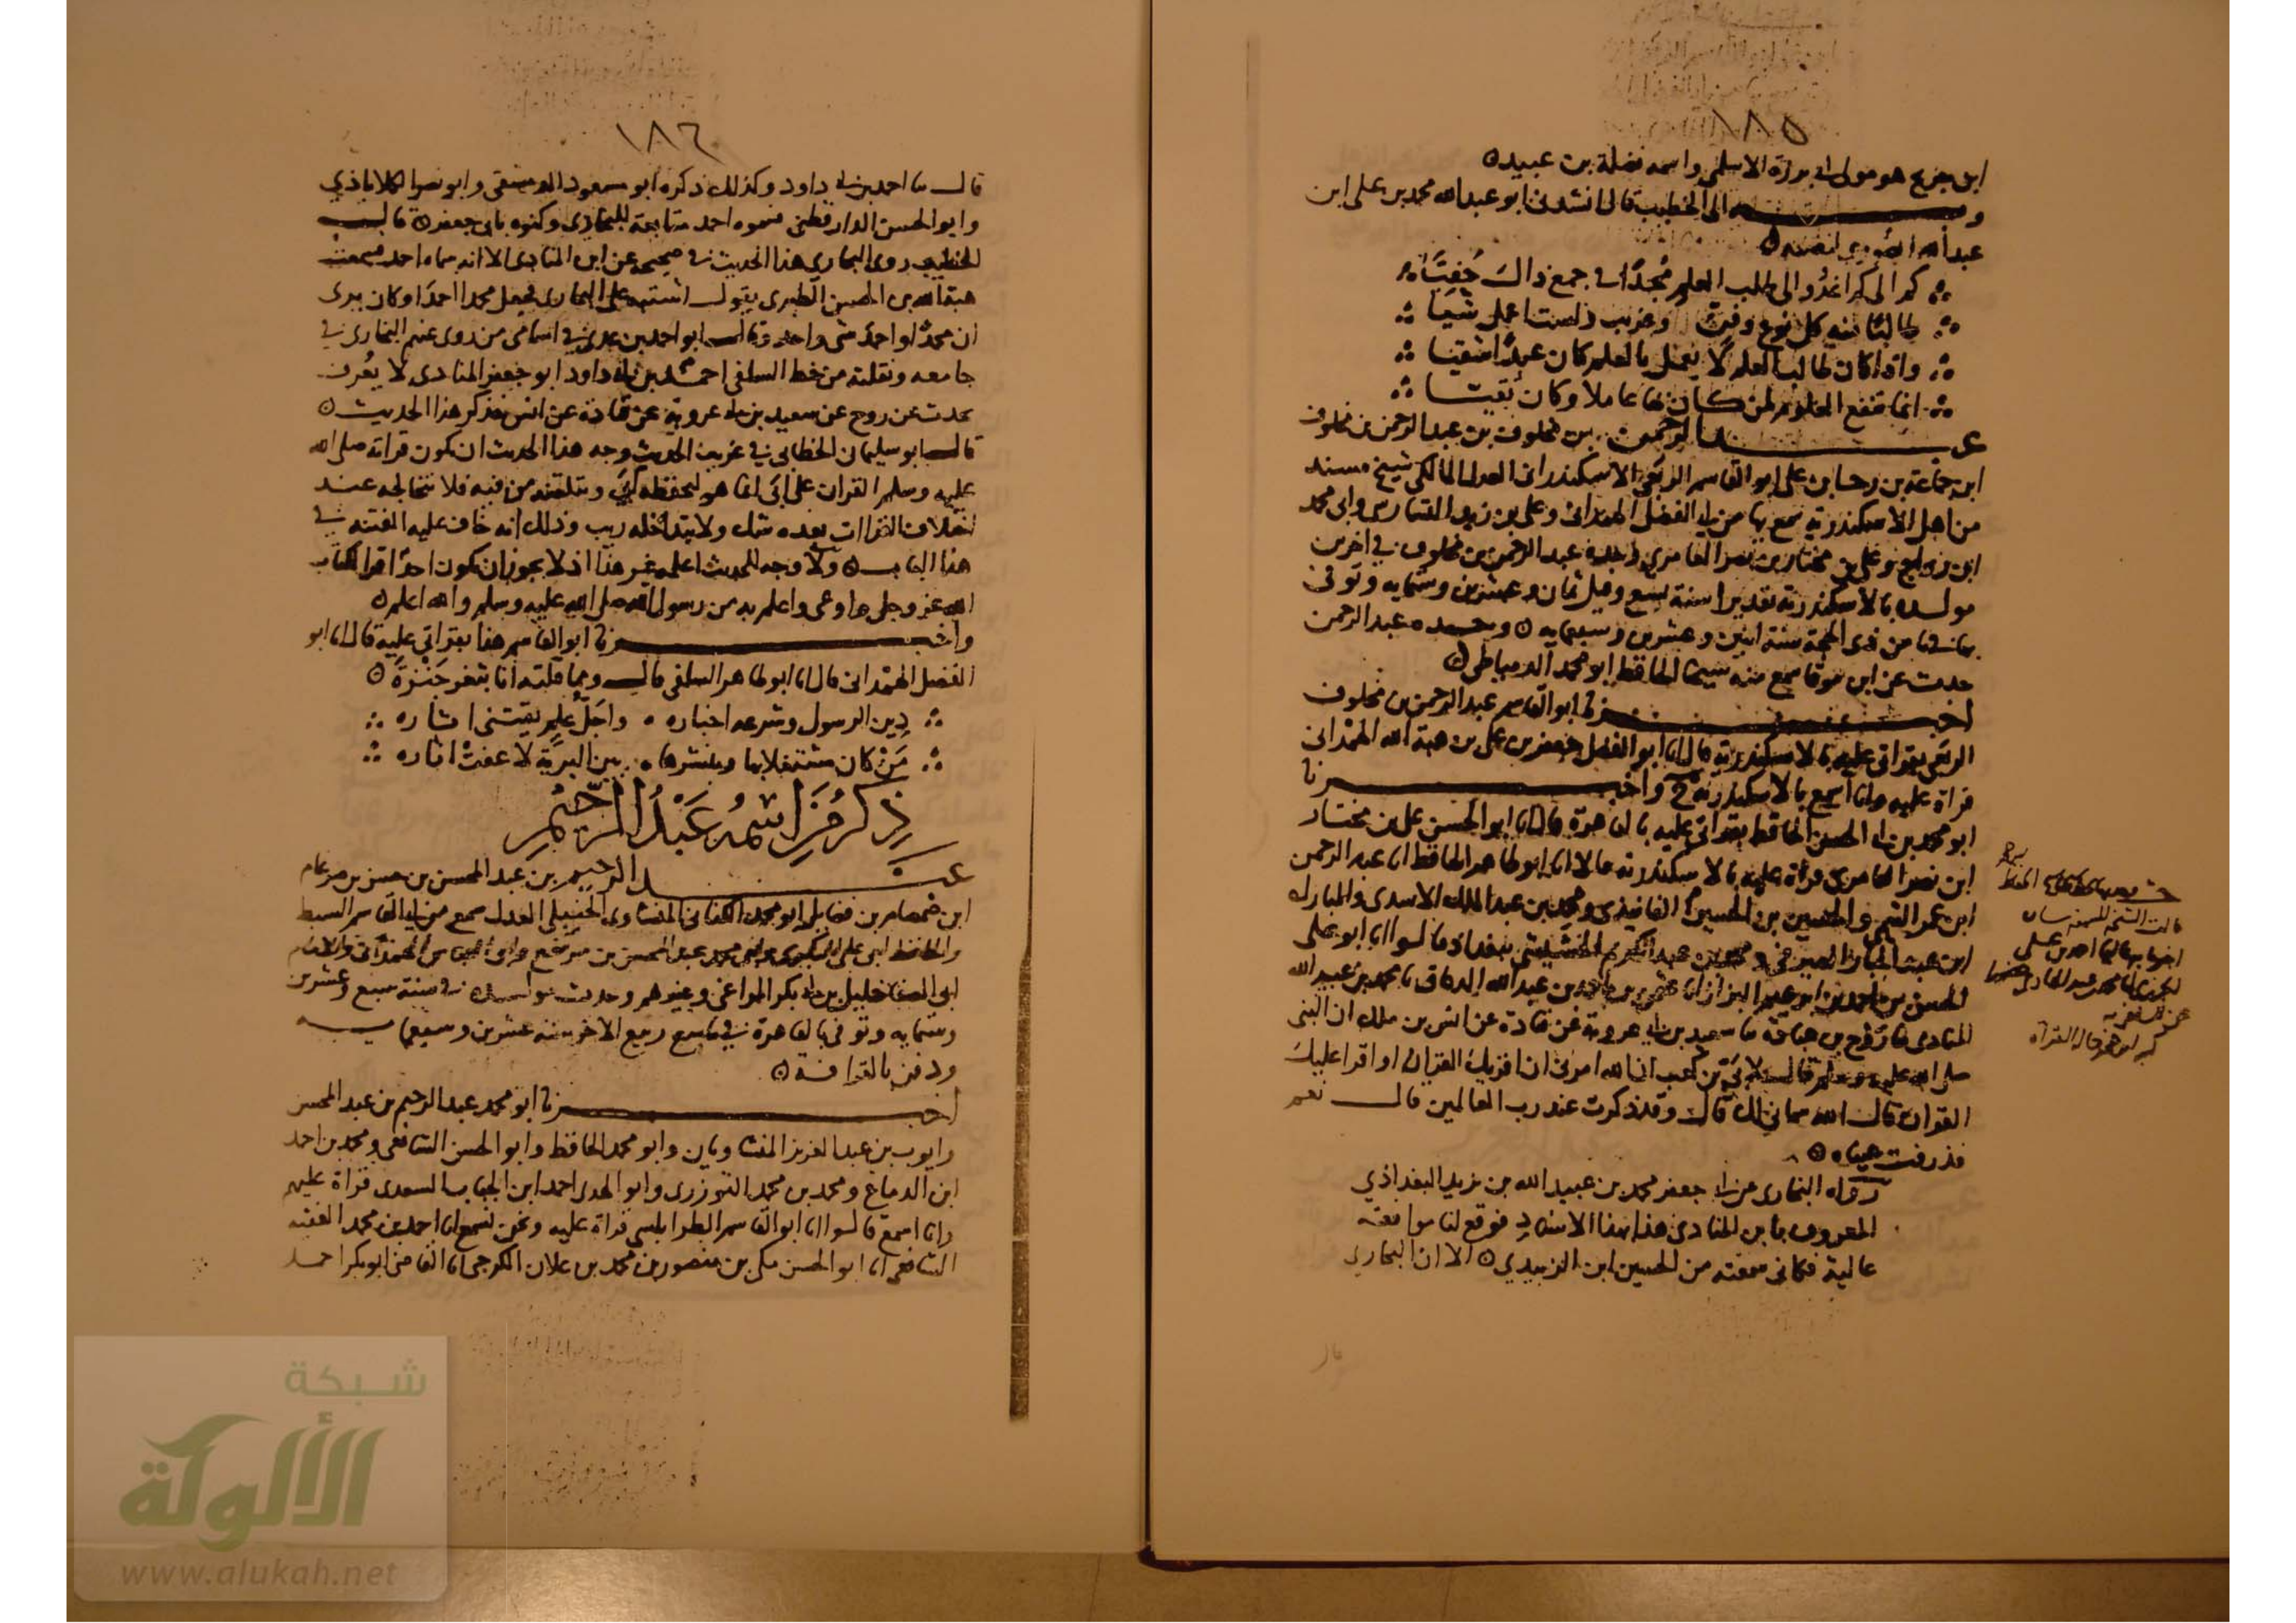 ١٨٥
ابن جريج هو مولى أبي برزة الاسلمي واسمه نضلة بن عبيد ه
وبه الى الخطيب قال انشدني ابو عبد الله محمد بن علي ابن
عبد الله الصوري لنفسه ه
كم الى كم اغدُو الى طلب العلم مُجدًّا في جمع ذاكَ حَفِيَّا
طالبًا منه كل نوع وفن وغريب ولست اعمل شيّا
واذا كان طالب العلم لا يعمل بالعلم كان عبدًا شقيا
انما تنفع العلوم لمن كان بها عاملا وكان تقيّا
عبد الرحمن بن مخلوف بن عبد الرحمن بن مخلوف
ابن جماعة بن رجا بن علي ابو القاسم الربعي الاسكندراني العدل المالكي شيخ مسند
من اهل الاسكندرية سمع بها من ابي الفضل الهمداني وعلي بن زيد التسارسي وابي محمد
ابن رواج وعلي بن مختار بن نصر العامري وجده عبد الرحمن بن مخلوف في اخرين
مولده بالاسكندرية تقديرا سنة تسع وقيل ثمان وعشرين وستمايه وتوفي
بها في ثامن ذي الحجة سنة اثنين وعشرين وسبعمايه ه وجده عبد الرحمن
حدث عن ابن موقا سمع منه شيخنا الحافظ ابو محمد الدمياطي ه
اخبرنا ابو القاسم عبد الرحمن بن مخلوف
الربعي بقراتي عليه بالاسكندرية قال انا ابو الفضل جعفر بن علي بن هبة الله الهمداني
قراة عليه وانا اسمع بالاسكندرية ح واخبرنا
ابو محمد بن ابي الحسن الحافظ بقراتي عليه بالقاهرة قال انا ابو الحسن علي بن مختار
ابن نصر العامري قراة عليه بالاسكندرية قالا انا ابو طاهر الحافظ انا عبد الرحمن
ابن عمر التيمي والحسين بن الحسين الفانيذي ومحمد بن عبد الملك الاسدي والمبارك
ابن عبد الجبار الصيرفي ومحمد بن عبد الكريم الخشيشي ببغداد قالوا انا ابو علي
الحسن بن احمد بن ابرهيم البزاز انا عثمن بن احمد بن عبد الله الدقاق نا محمد بن عبيد الله
المنادي نا روح بن عبادة نا سعيد بن ابي عروبة عن قتادة عن انس بن ملك ان النبي
صلى الله عليه وسلم قال لاُبَيّ بن كعب ان الله امرني ان اقريك القران او اقرا عليك
القران قال الله سماني لك قال وقد ذكرت عند رب العالمين قال نعم
فذرفت عيناه ه
رواه البخاري عن ابي جعفر محمد بن عبيد الله بن يزيد البغداذي
المعروف بابن المنادي هذا بهذا الاسناد فوقع لنا موافقة
عالية فكاني سمعته من الحسين ابن الزبيدي ه الا ان البخاري
قال
١٨٦
قال نا احمد بن ابي داود وكذلك ذكره ابو مسعود الدمشقي وابو نصر الكلاباذي
وابو الحسن الدارقطني فسموه احمد متابعة للبخاري وكنوه بابي جعفر ه قال
الخطيب روى البخاري هذا الحديث في صحيحه عن ابن المنادي الا انه سماه احمد فسمعت
هبة الله بن الحسن الطبري يقول اشتبه على البخاري فجعل محمدا احمدَ او كان يرى
ان محمدًا واحمدَ شي واحد وقال ابو احمد بن عدي في اسامي من روى عنهم البخاري في
جامعه ونقلته من خط السلفي احمد بن ابي داود ابو جعفر المنادي لا يُعرف
يحدث عن روح عن سعيد بن ابي عروبة عن قتادة عن انس فذكر هذا الحديث ه
قال ابو سليمان الخطابي في غريب الحديث وجه هذا الحديث ان تكون قراته صلى الله
عليه وسلم القران على ابَي انما هو ليحفظه اُبَي ويتلقنه من فيه فلا يتخالجه عند
اختلاف القراات بعده شك ولا يتداخله ريب وذلك انه خاف عليه الفتنة في
هذا الباب ه ولا وجه للحديث اعلمه غير هذا اذ لا يجوز ان يكون احدًا اقرا لكتاب
الله عز وجل ولا اوعى واعلم به من رسول الله صلى الله عليه وسلم والله اعلم ه
واخبرنا ابو القاسم هذا بقراتي عليه قال انا ابو
الفضل الهَمْداني قال انا ابو طاهر السلفي قال ومما قلته انا بثغر جَنْزَةَ ه
دِين الرسول وشرعه اخباره واجَلّ علم يقتنى اثاره
مَن كان مشتغلا بها وبنشرها بين البريّة لا عفتْ اثاره
ذِكْرُ مَنِ اسْمُهُ عَبْدُ الرَّحِيْمِ
عبد الرحيم بن عبد المحسن بن حسن بن ضرغام
ابن صمصام بن فضايل ابو محمد الكناني المنشاوي الحنبلي العدل سمع من ابي القاسم السبط
والحافظ ابي علي البكري وابي محمد عبد المحسن بن مرتفع وابي العباس والامام
ابي الصفا خليل بن ابي بكر المراغي وغيرهم وحدث مولده في سنة سبع وعشرين
وستمايه وتوفي بالقاهرة في تاسع ربيع الاخر سنه عشرين وسبعمايه
ودفن بالقرافة ه
اخبرنا ابو محمد عبد الرحيم بن عبد المحسن
وايوب بن عبد العزيز المنشاويان وابو محمد الحافظ وابو الحسن الشافعي ومحمد بن احمد
ابن الدماغ ومحمد بن محمد التوزري وابو الهدى احمد ابن الجباب السعدي قراة عليهم
وانا اسمع قالوا انا ابو القاسم الطرابلسي قراة عليه ونحن نسمع انا احمد بن محمد الفقيه
الشافعي انا ابو الحسن مكي بن منصور بن محمد بن علان الكرجي انا القاضي ابو بكر احمد
شبكة
الألوكة
www.alukah.net